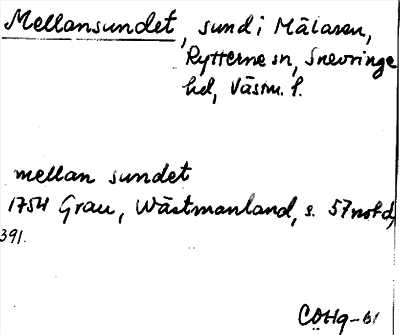 Mellansundet, sund i Mälaren,
Rytterne sn, Snevringe
hd, Västm. l.
mellan sundet
1754 Grau, Wästmanland, s. 57 not d,
391.
COHq-61